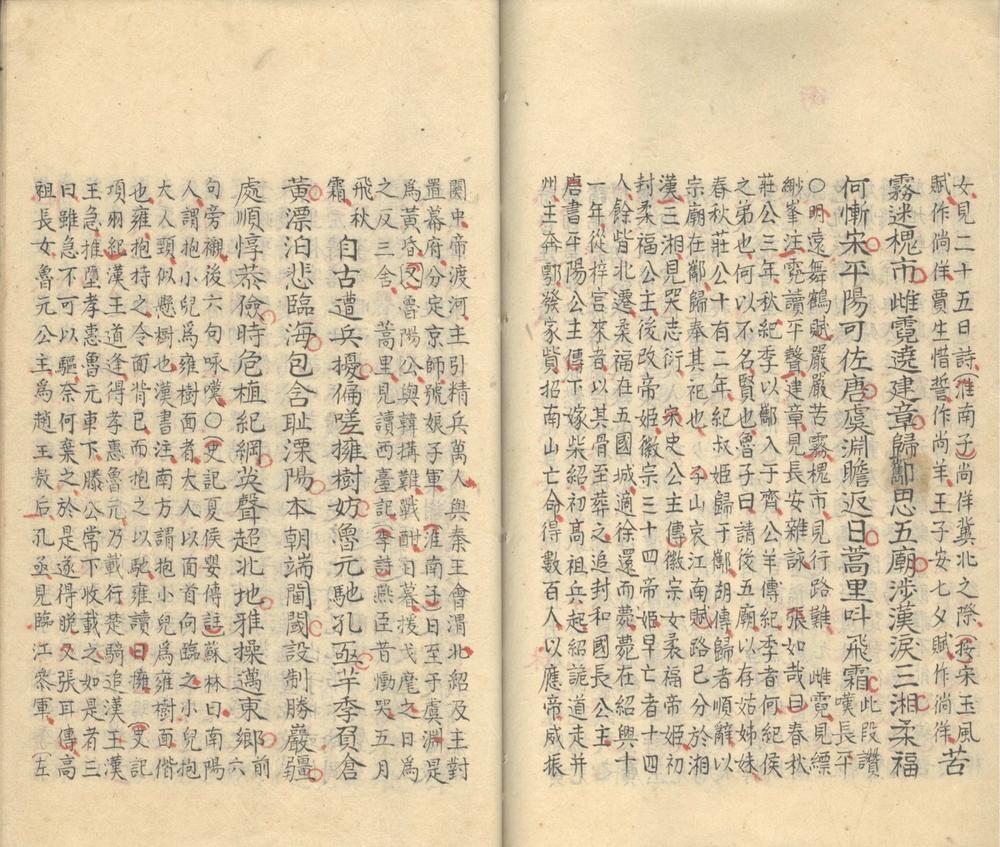 女見二十五日詩淮南子尚佯冀北之際按宋玉風
賦作倘佯賈生惜誓作尚羊王子安七夕賦作倘佯 苦
霧迷槐市雌霓遶建章歸酅思五廟涉漢淚三湘柔福
何慚宋平陽可佐唐虞淵瞻返日蒿里呌飛霜此段讚嘆長平
〇明遠舞鶴賦嚴嚴苦霧槐市見行路難 雌霓見縹
緲峯注霓讀平聲建章見長安雜詠 張如哉曰春秋
莊公三年秋紀季以酅入于齊公羊傳紀季者何紀侯
之弟也何以不名賢也魯子曰請後五廟以存姑姊妹
春秋莊公十有二年紀叔姬歸于酅胡傳歸者順辭以
宗廟在酅歸奉其祀也 子山哀江南賦路已分於湘
漢三湘見哭志衍 宋史公主傳徽宗女柔福帝姬初
封柔福公主後改帝姬徽宗三十四帝姬早亡者十四
人餘皆北遷柔福在五國城適徐還而薨薨在紹興十
一年從梓宮來者以其骨至葬之追封和國長公主
唐書平陽公主傳下嫁柴紹初高祖兵起紹詭道走并
州主奔鄠發家貲招南山亡命得數百人以應帝威振
關中帝渡河主引精兵萬人與秦王會渭北紹及主對
置幕府分定京師號娘子軍 淮南子日至于虞淵是
爲黃昏又魯陽公與韓搆難戰酣日暮援戈麾之日爲
之反三舍 蒿里見讀西臺記李詩燕臣昔慟哭五月
飛秋霜 自古遭兵擾偏嗟擁樹妨魯元馳孔亟芊季負倉
黃漂泊悲臨海包含耻溧陽本朝端閫閾設制勝嚴疆
處順惇恭儉時危植紀綱英聲超北地雅操邁東鄉前六
句旁襯後六句咏嘆〇史記夏侯嬰傳註蘇林曰南陽
人謂抱小兒爲雍樹面者大人以面首向臨之小兒抱
大人頸似懸樹也漢書注南方謂抱小兒爲雍樹面偕
也雍抱持之令面背已而抱之以馳雍讀曰擁 史記
項羽紀漢王道逢得孝惠魯元乃載行楚騎追漢王漢
王急推墮孝惠魯元車下滕公常下收載之如是者三
曰雖急不可以驅奈何棄之於是遂得脫又張耳傳高
祖長女魯元公主爲趙王敖后孔亟見臨江參軍 左